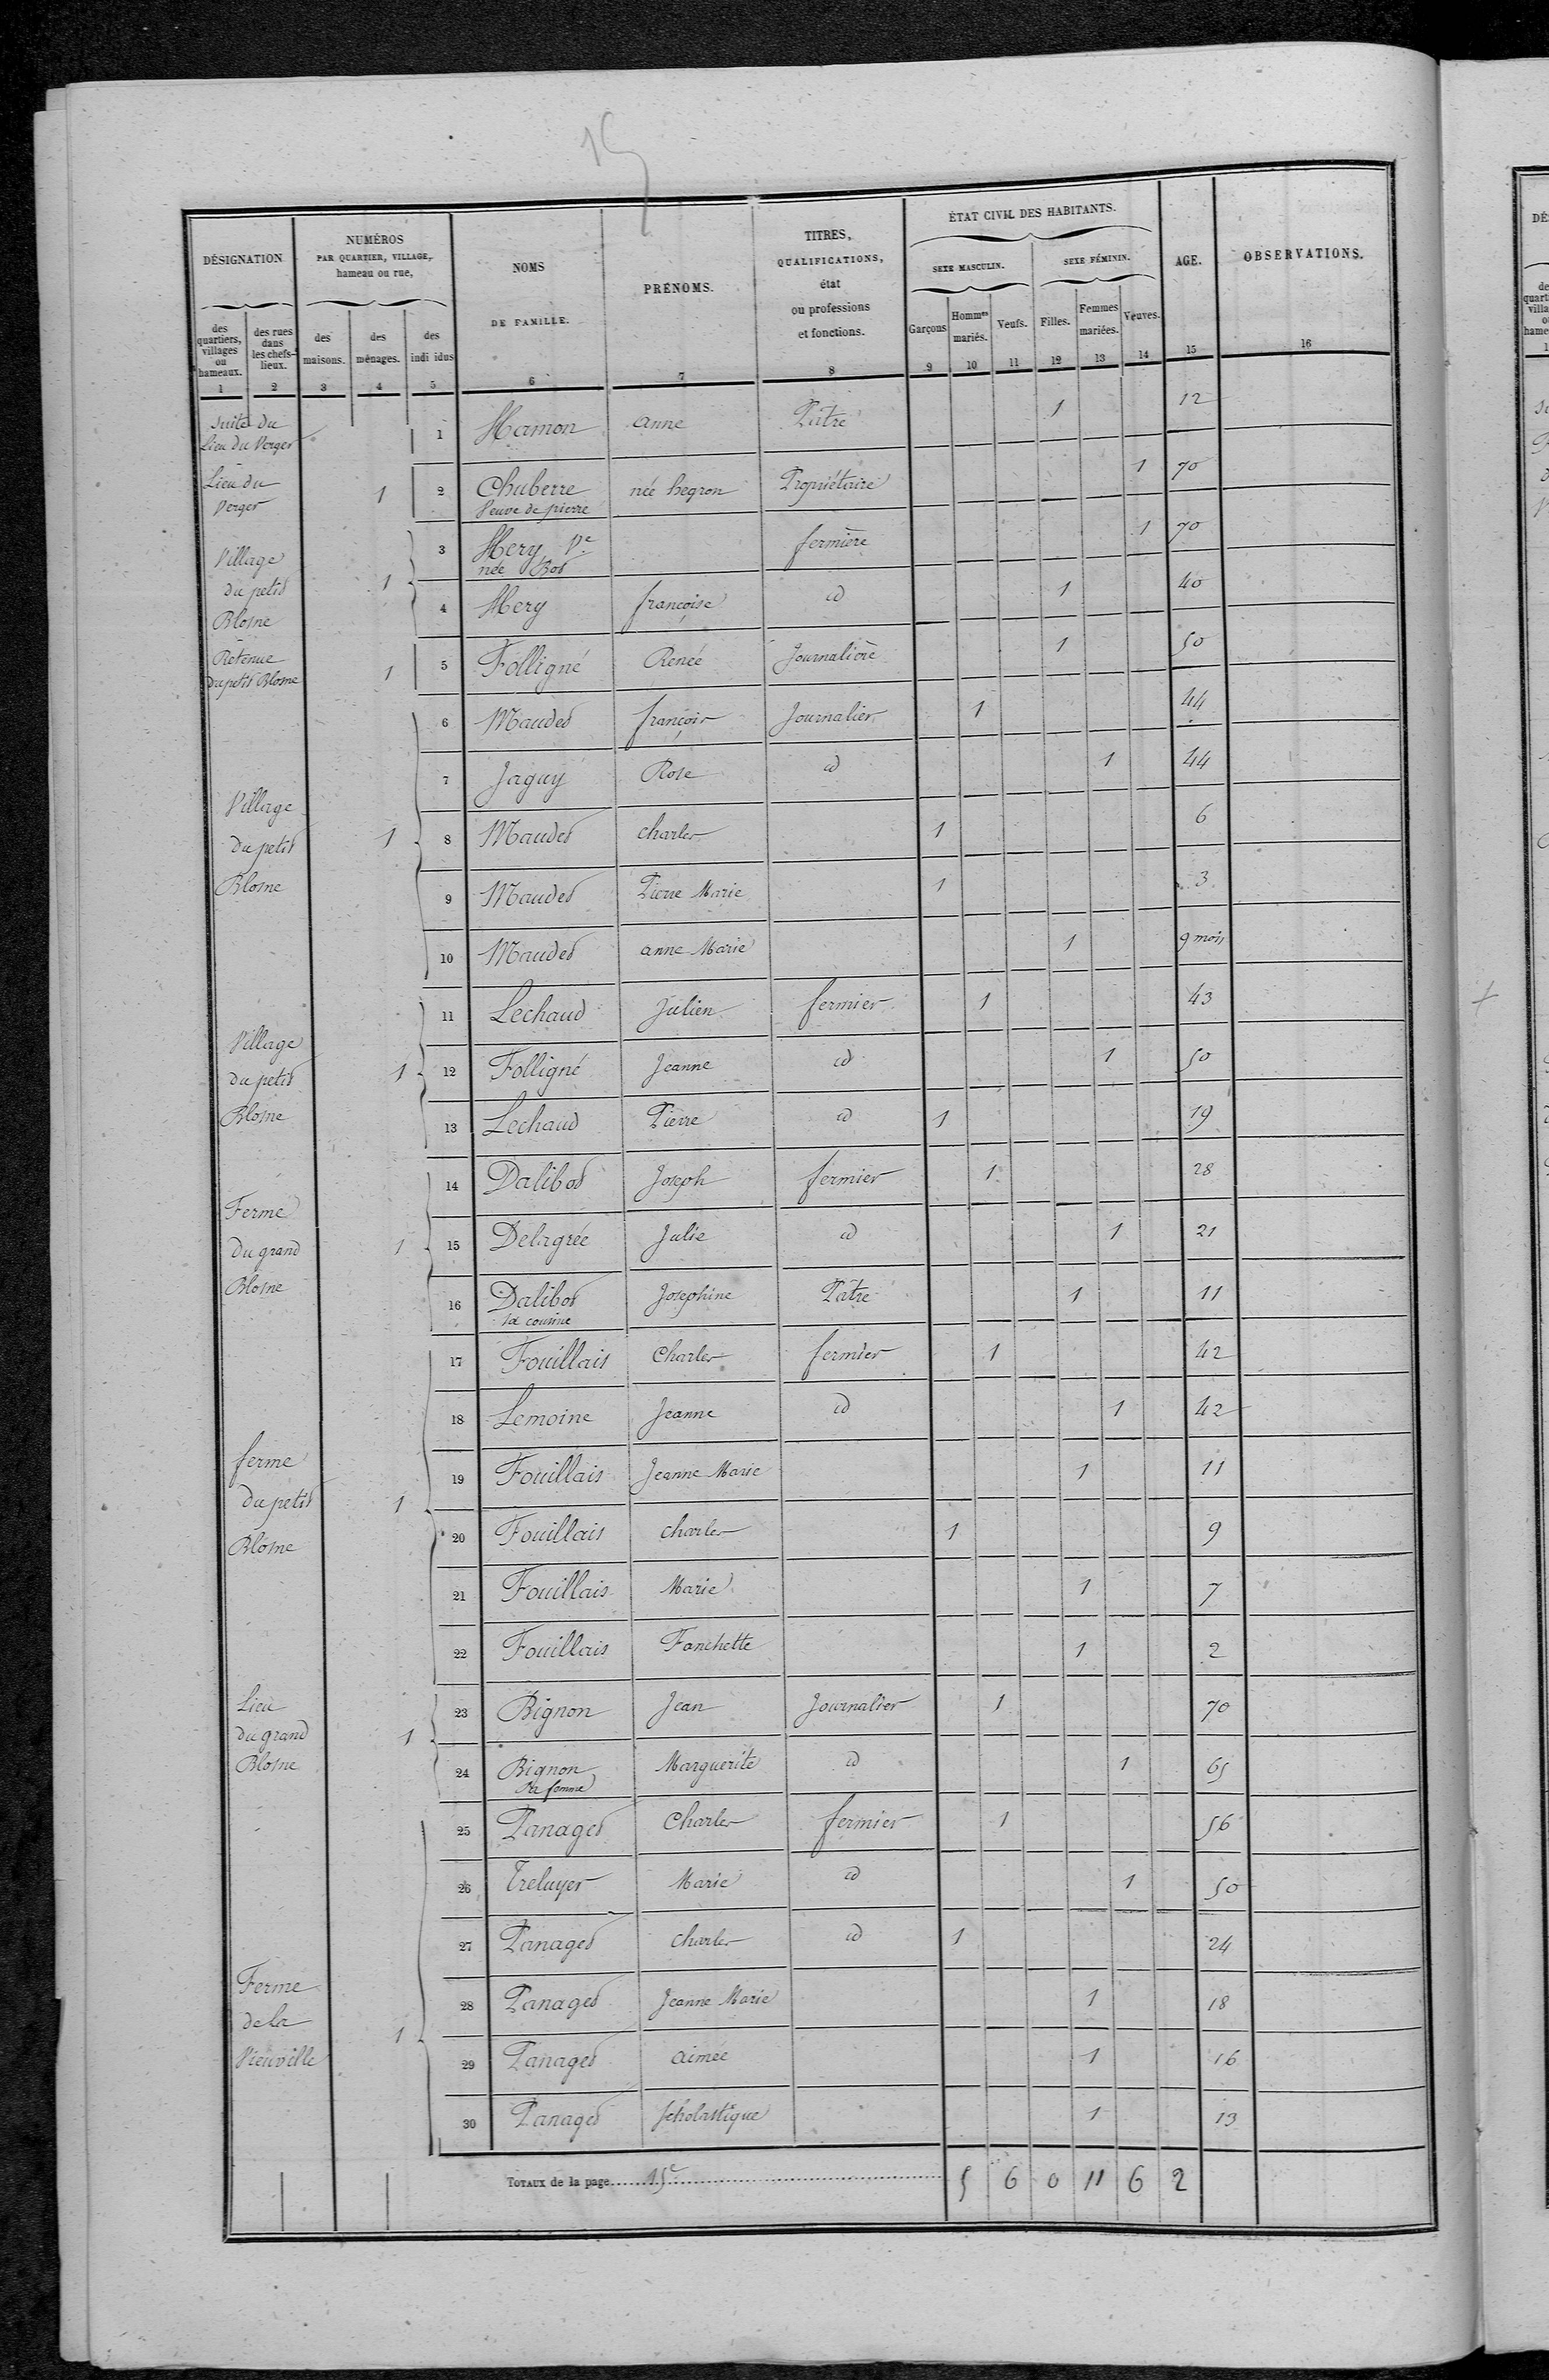 15
DÉSIGNATION
NUMÉROS
PAR QUARTIER, VILLAGE,
hameau ou rue,
NOMS
DE FAMILLE.
PRÉNOMS.
TITRES,
QUALIFICATIONS,
état
ou professions
et fonctions.
ÉTAT CIVIL DES HABITANTS.
SEXE MASCULIN.
SEXE FÉMININ.
AGE.
OBSERVATIONS.
des quartiers, villages ou hameaux.
des rues dans les chefs-lieux.
des maisons.
des ménages.
des indi idus
Garçons
Hommes mariés.
Veufs.
Filles.
Femmes mariées.
Veuves.
1 2 3 4 5 6 7 8 9 10 11 12 13 14 15 16
Suite du Lieu du Verger 1 Hamon anne Pâtre 1 12
Lieu du Verger 1 2 Chuberre née hegron Propriétaire 1 70
Veuve de pierre
Village du petit Blosne 1 3 Hery Ve fermière 1 70
née Bot
4 Hery françoise id 1 40
Retenue du petit Blosne 1 5 Folligné Renée Journalière 1 50
Village du petit Blosne 1 6 Maudet françois Journalier 1 44
7 Jaguy Rose id 1 44
8 Maudet charles 1 6
9 Maudet Pierre Marie 1 3
10 Maudet anne Marie 1 9 mois
Village du petit Blosne 1 11 Lechaud Julien fermier 1 43
12 Folligné Jeanne id 1 50
13 Lechaud Pierre id 1 19
Ferme du grand Blosne 1 14 Dalibot Joseph fermier 1 28
15 Delagrée Julie id 1 21
16 Dalibot Josephine Pâtre 1 11
sa cousine
ferme du petit Blosne 1 17 Fouillais Charles fermier 1 42
18 Lemoine Jeanne id 1 42
19 Fouillais Jeanne Marie 1 11
20 Fouillais charles 1 9
21 Fouillais Marie 1 7
22 Fouillais Fanchette 1 2
Lieu du grand Blosne 1 23 Bignon Jean Journalier 1 70
24 Bignon Marguerite id 1 65
sa femme
Ferme de la Vieuville 1 25 Panaget Charles fermier 1 56
26 Treluyer Marie id 1 50
27 Panaget charles id 1 24
28 Panaget Jeanne Marie 1 18
29 Panaget aimée 1 16
30 Panaget scholastique 1 13
TOTAUX de la page 15e 5 6 0 11 6 2